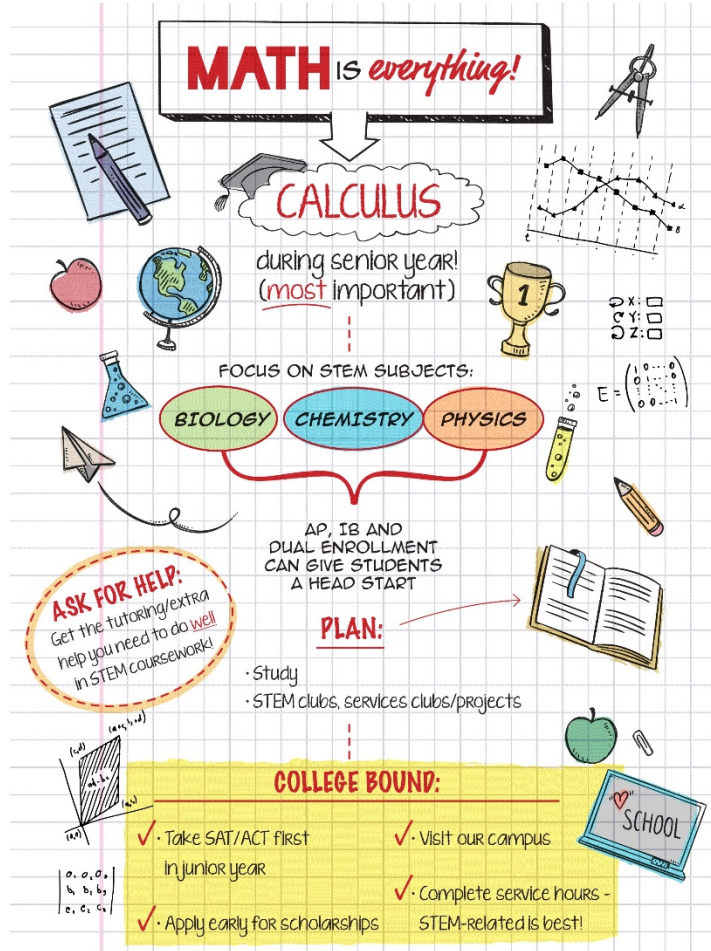 MATH IS everything!
CALCULUS
during senior year!
(most important)
1
t
α
B
X:
Y:
Z:
E=
FOCUS ON STEM SUBJECTS:
BIOLOGY CHEMISTRY PHYSICS
AP, IB AND
DUAL ENROLLMENT
CAN GIVE STUDENTS
A HEAD START
ASK FOR HELP:
Get the tutoring/extra
help you need to do well
in STEM coursework!
PLAN:
· Study
· STEM clubs, services clubs/projects
COLLEGE BOUND:
✓· Take SAT/ACT first
in junior year
✓· Apply early for scholarships
✓· Visit our campus
✓· Complete service hours -
STEM-related is best!
SCHOOL